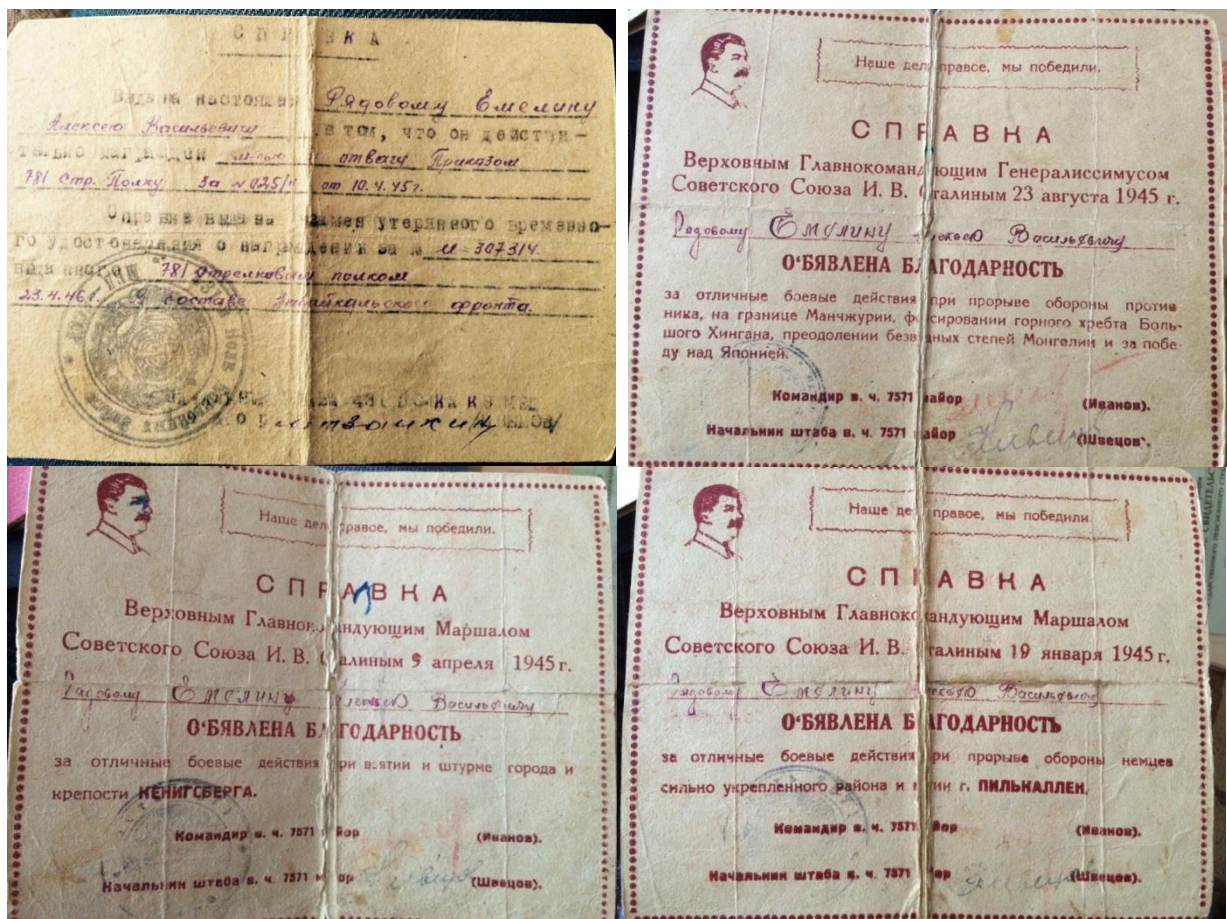 СПРАВКА
Выдана настоящая Рядовому Емелину
Алексею Васильевичу в том, что он действи-
тельно награжден м-лью отвагу Приказом
781 Стр. Полку За № 025/н от 10.4.45г.
Справка выдана взамен утерянного временно-
го удостоверения о награждении за № И-307314
выданного 781 стрелковым полком
23.4.46г. В составе Забайкальского фронта.
Наше дело правое, мы победили.
СПРАВКА
Верховным Главнокомандующим Генералиссимусом
Советского Союза И. В. Сталиным 23 августа 1945 г.
Рядовому Емелину Алексею Васильевичу
О‘БЯВЛЕНА БЛАГОДАРНОСТЬ
за отличные боевые действия при прорыве обороны против
ника, на границе Манчжурии, форсировании горного хребта Боль-
шого Хингана, преодолении безводных степей Монголии и за побе-
ду над Японией.
Командир в. ч. 7571 майор (Иванов).
Начальник штаба в. ч. 7571 майор (Швецов).
Наше дело правое, мы победили.
СПРАВКА
Верховным Главнокомандующим Маршалом
Советского Союза И. В. Сталиным 9 апреля 1945 г.
Рядовому Емелину Алексею Васильевичу
О‘БЯВЛЕНА БЛАГОДАРНОСТЬ
за отличные боевые действия при взятии и штурме города и
крепости КЕНИГСБЕРГА.
Командир в. ч. 7571 майор (Иванов).
Начальник штаба в. ч. 7571 майор (Швецов).
Наше дело правое, мы победили.
СПРАВКА
Верховным Главнокомандующим Маршалом
Советского Союза И. В. Сталиным 19 января 1945 г.
Рядовому Емелину Алексею Васильевичу
О‘БЯВЛЕНА БЛАГОДАРНОСТЬ
за отличные боевые действия при прорыве обороны немцев
сильно укрепленного района и взятии г. ПИЛЬКАЛЛЕН.
Командир в. ч. 7571 майор (Иванов).
Начальник штаба в. ч. 7571 майор (Швецов).